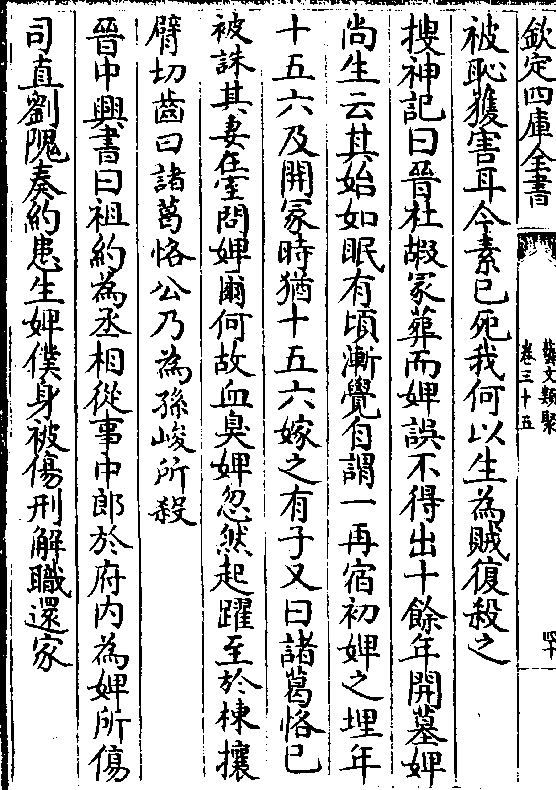 欽定四庫全書
藝文類聚
卷三十五
四十
被恥獲害耳今素已死我何以生為賊復殺之
搜神記曰晉杜嘏冢葬而婢誤不得出十餘年開墓婢
尚生云其始如眠有頃漸覺自謂一再宿初婢之埋年
十五六及開冢時猶十五六嫁之有子又曰諸葛恪已
被誅其妻在室問婢爾何故血臭婢忽然起躍至於棟攘
臂切齒曰諸葛恪公乃為孫峻所殺
晉中興書曰祖約為丞相從事中郎於府内為婢所傷
司直劉隗奏約患生婢僕身被傷刑解職還家